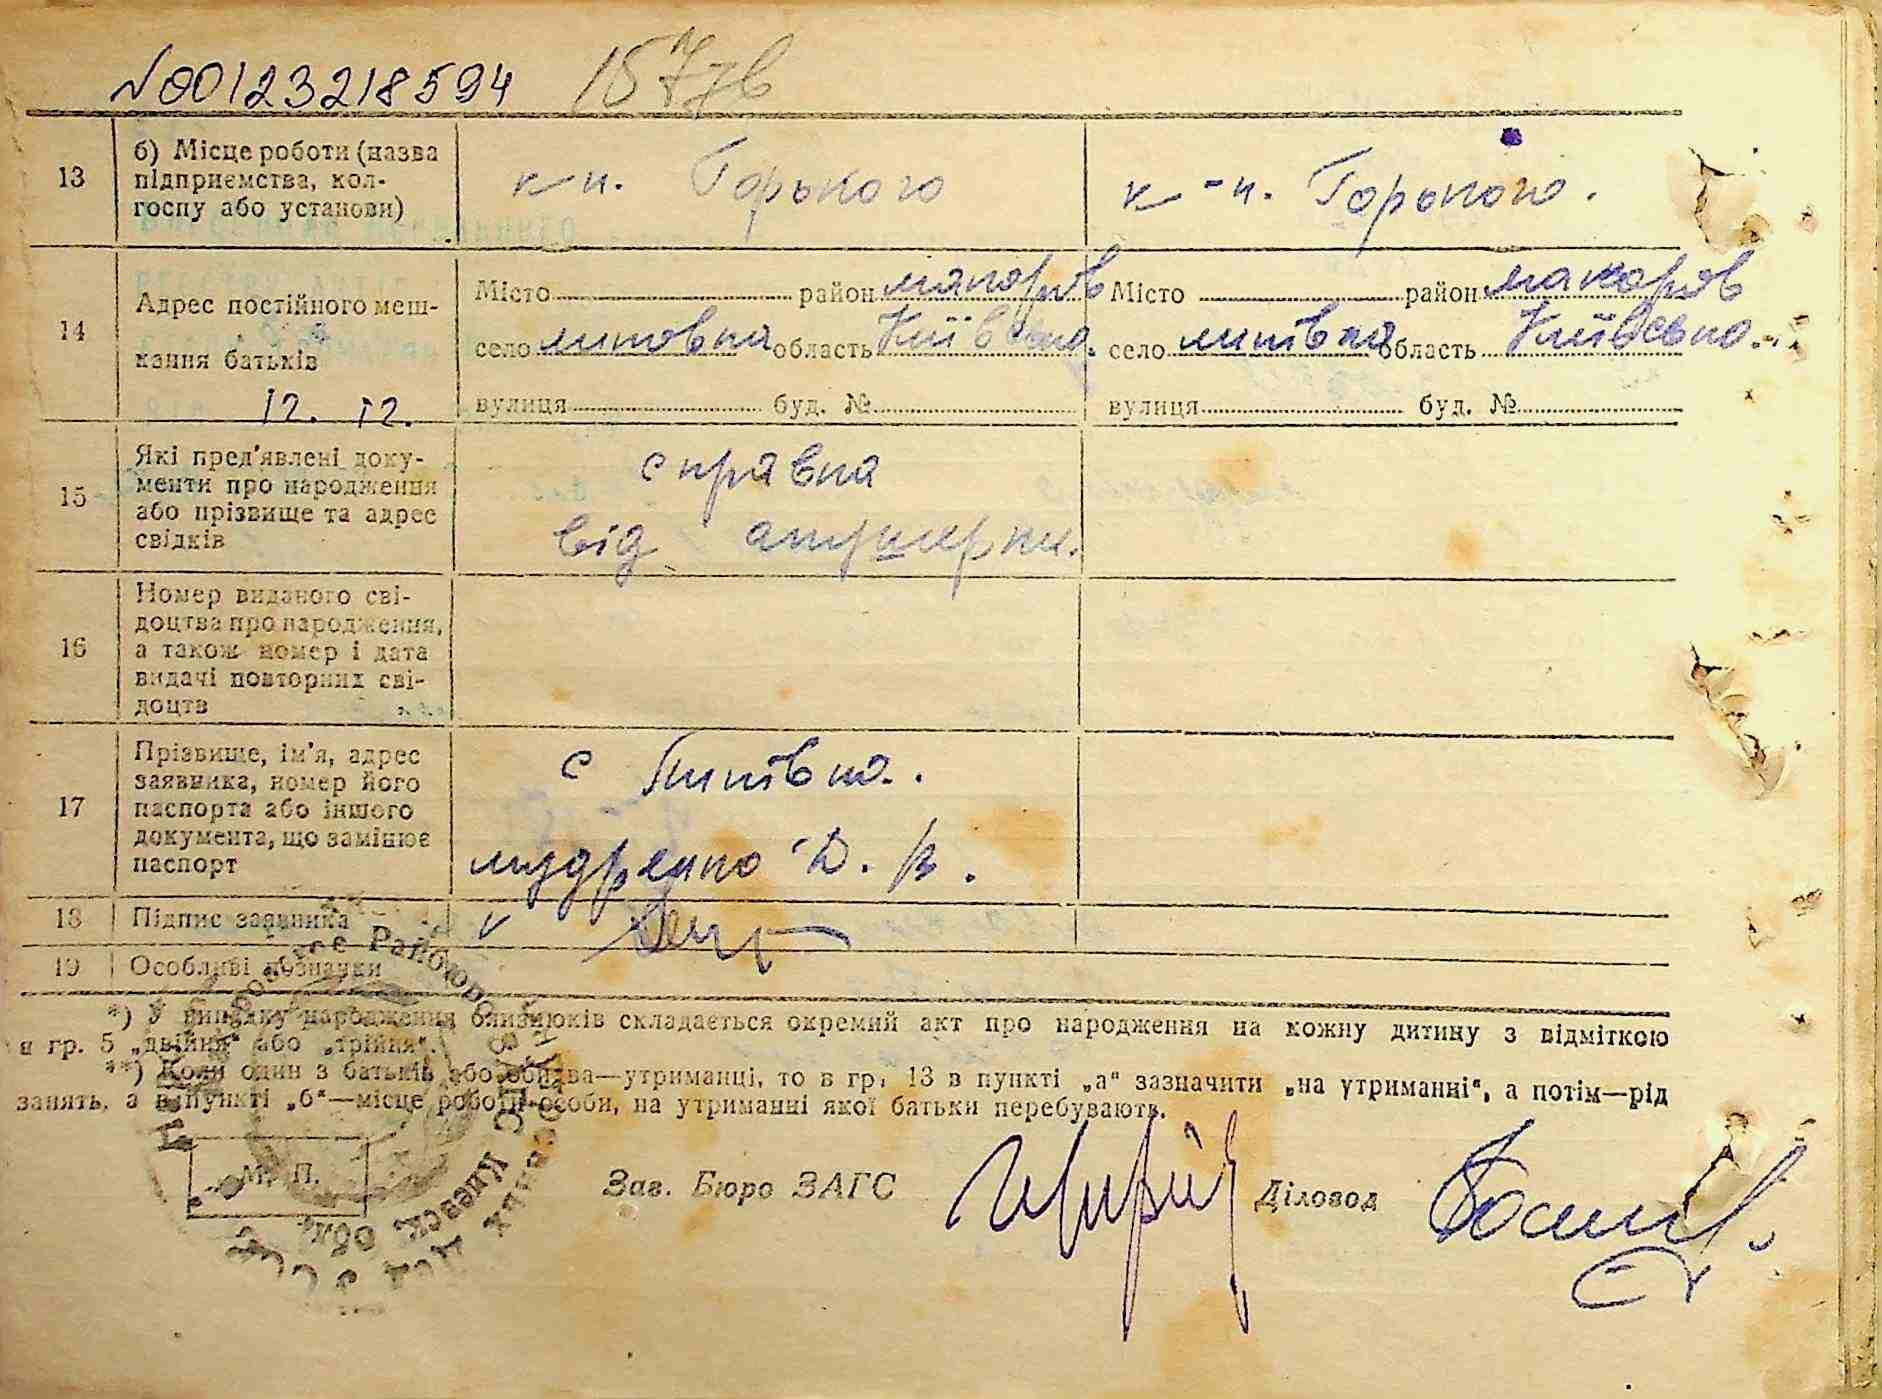 №00123218594 157зв
13
б) Місце роботи (назва
підприємства, кол-
госпу або установи)
к-п. Горького
к-п. Горького.
14
Адрес постійного меш-
кання батьків
12. 12.
Місто район макарів
село липовка область Київська.
вулиця буд. №
Місто район макарів
село липівка область Київська.
вулиця буд. №
15
Які пред'явлені доку-
менти про народження
або прізвище та адрес
свідків
справка
від акушерки.
16
Номер виданого сві-
доцтва про народження,
а також номер і дата
видачі повторних сві-
доцтв
17
Прізвище, ім'я, адрес
заявника, номер його
паспорта або іншого
документа, що замінює
паспорт
с Липівка.
мудренко Д. В.
18
Підпис заявника
19
Особливі познауки
*) У випадку народження близнюків складається окремий акт про народження на кожну дитину з відміткою
в гр. 5 „двійня“ або „трійня“.
**) Коли один з батьків або обидва—утриманці, то в гр. 13 в пункті „а“ зазначити „на утриманні“, а потім—рід
занять, а в пункті „б“—місце роботи особи, на утриманні якої батьки перебувають.
М. П.
Зав. Бюро ЗАГС
Діловод
Киевск. Обл.